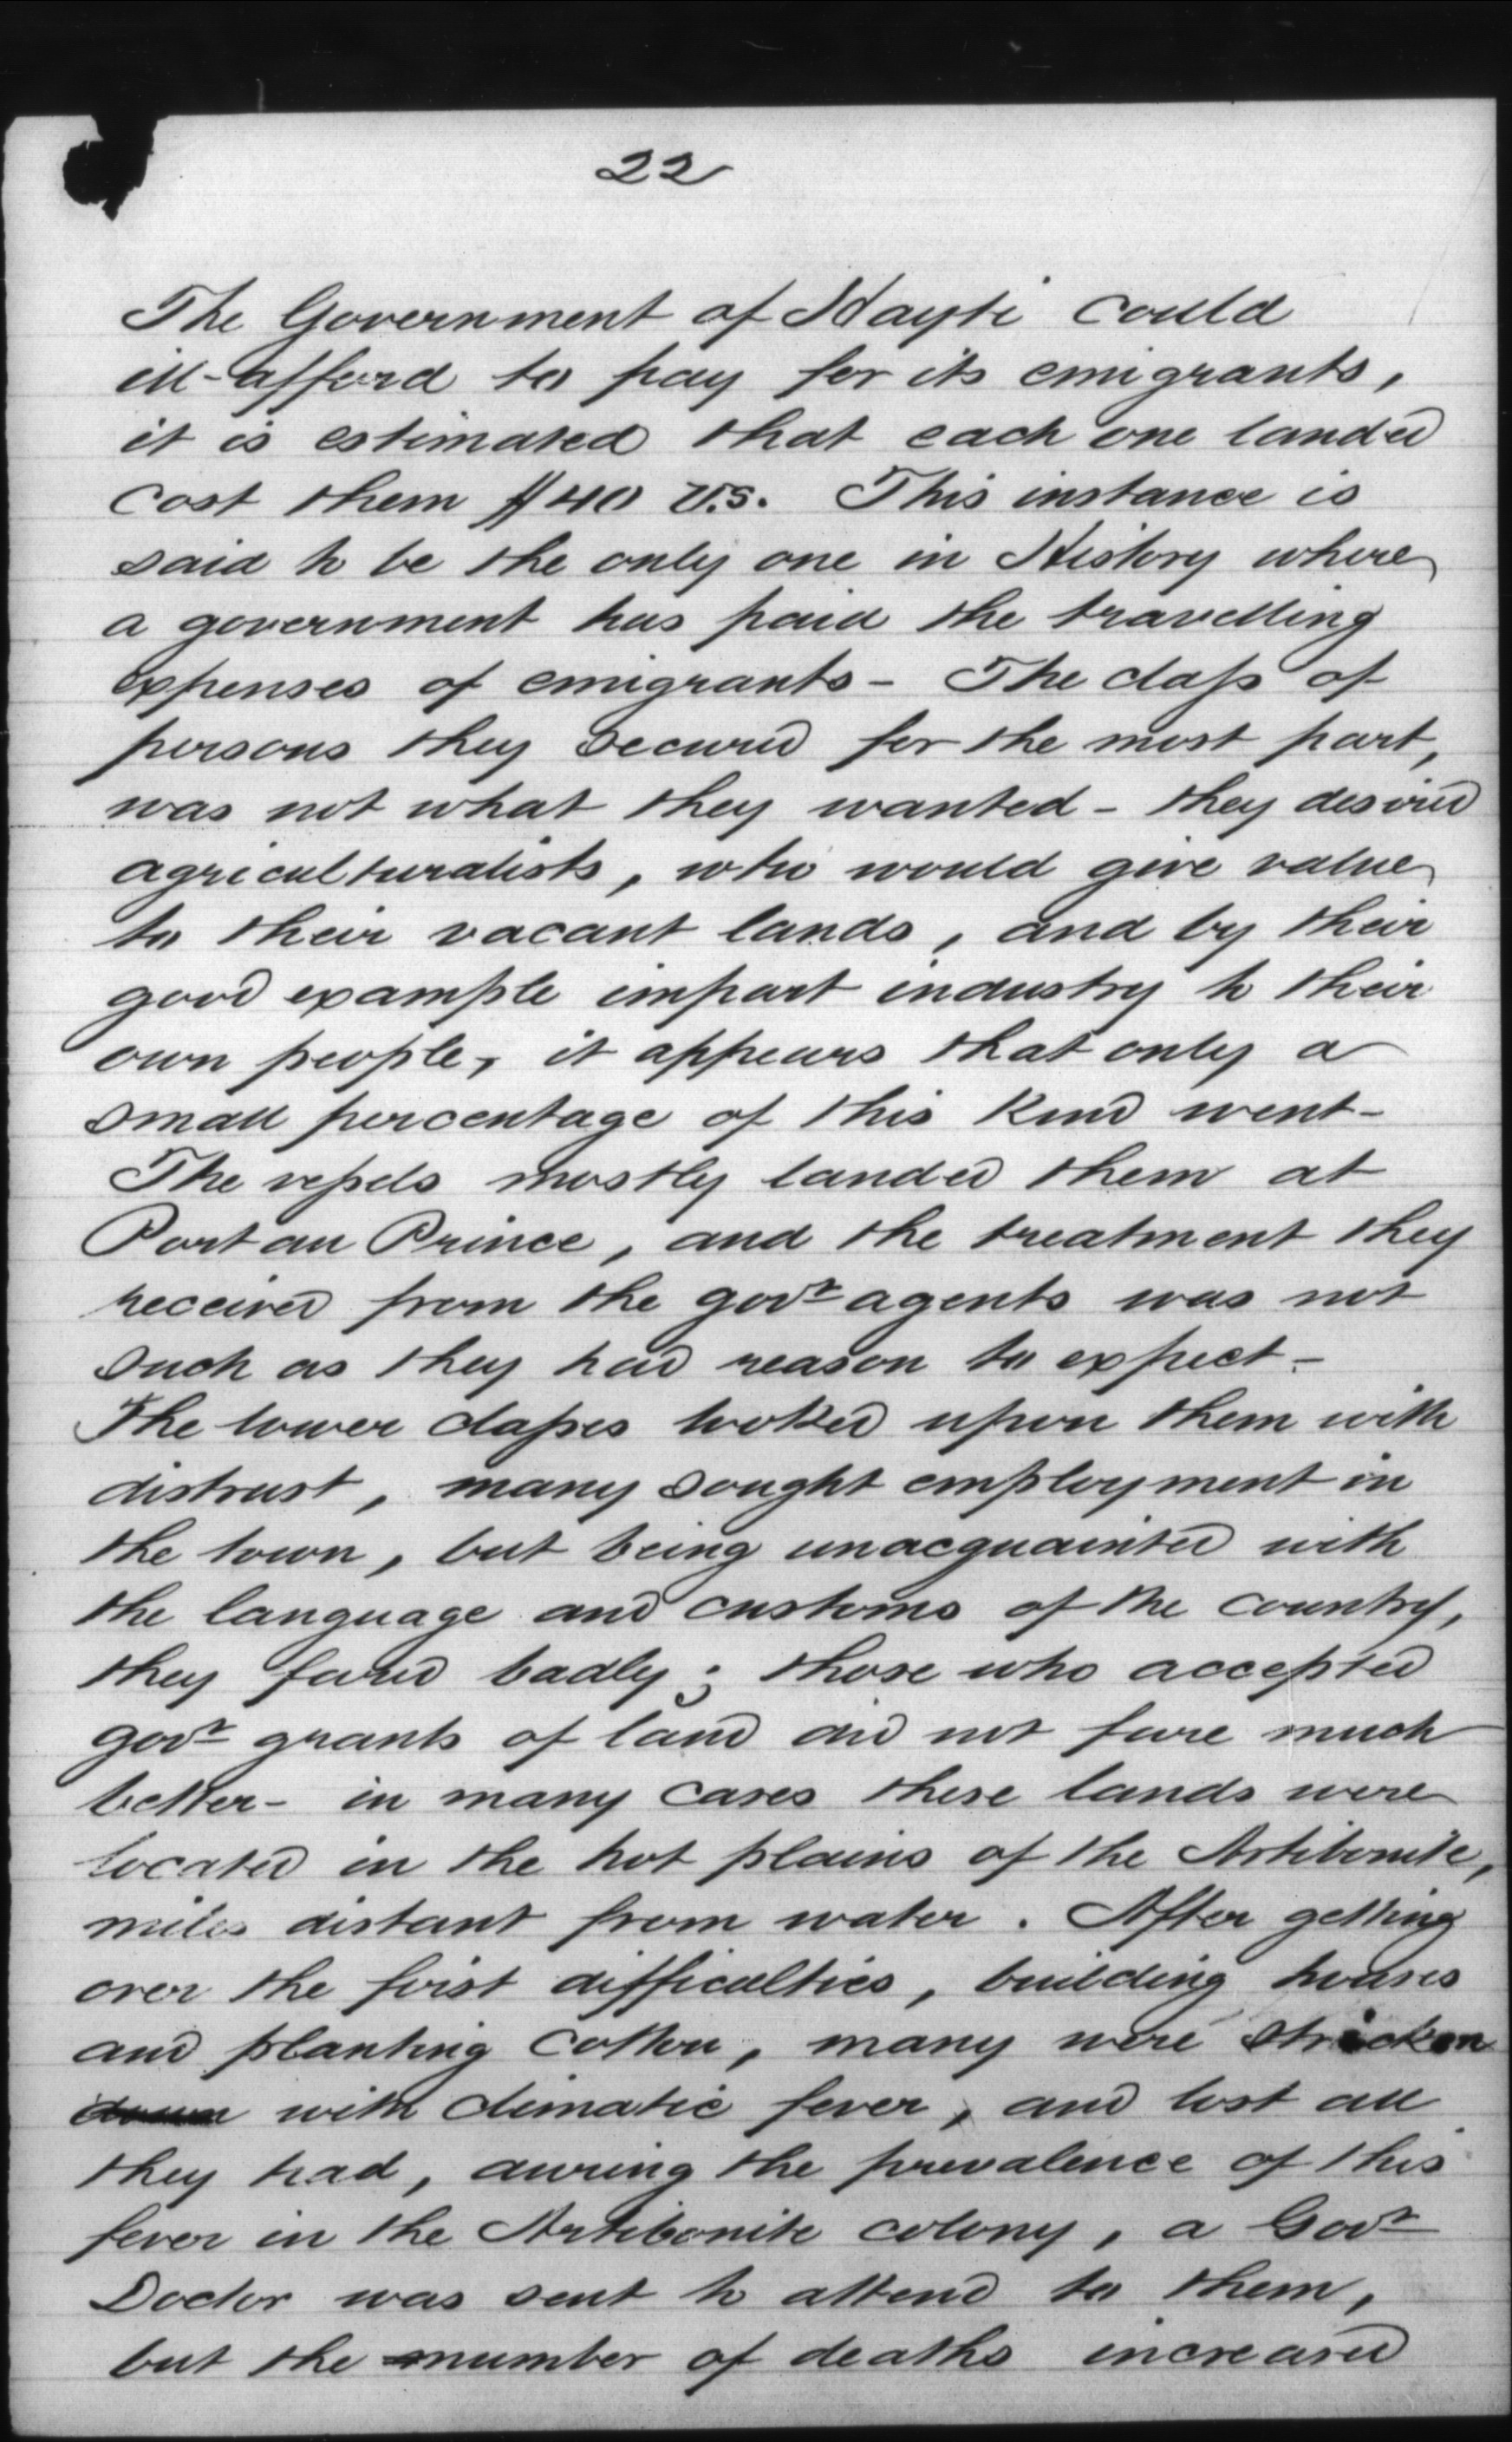 22
The Government of Hayti could
ill-afford to pay for its emigrants,
it is estimated that each one landed
cost them $40 U.S. This instance is
said to be the only one in History where
a government has paid the travelling
expenses of emigrants - The class of
persons they secured for the most part,
was not what they wanted - they desired
agriculturalists, who would give value
to their vacant lands, and by their
good example impart industry to their
own people, it appears that only a
small percentage of this kind went -
The vessels mostly landed them at
Port au Prince, and the treatment they
received from the govt agents was not
such as they had reason to expect -
The lower classes looked upon them with
distrust, many sought employment in
the town, but being unacquainted with
the language and customs of the country,
they fared badly; those who accepted
govt grants of land did not fare much
better - in many cases these lands were
located in the hot plains of the Artibonite,
miles distant from water. After getting
over the first difficulties, building houses
and planting cotton, many were stricken
down with climatic fever, and lost all
they had, during the prevalence of this
fever in the Artibonite colony, a Govt
Doctor was sent to attend to them,
but the number of deaths increased